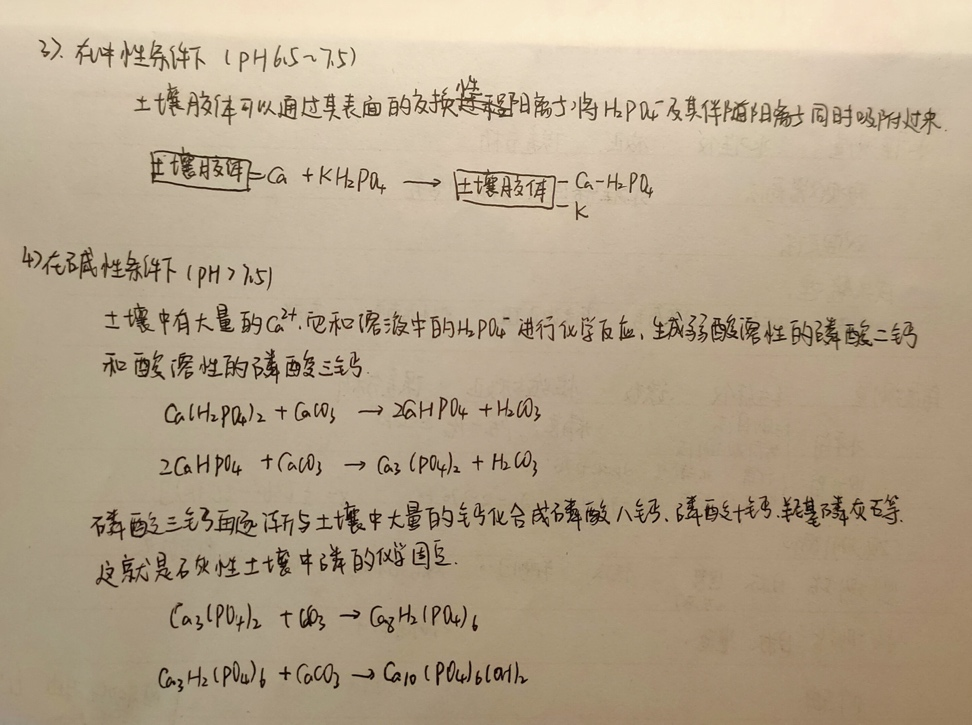 3). 在中性条件下 (PH6.5~7.5)
土壤胶体可以通过其表面的交换性阳离子将H₂PO₄⁻及其伴随阳离子同时吸附过来.
土壤胶体=Ca + KH₂PO₄ → 土壤胶体-Ca-H₂PO₄
-K
4)在碱性条件下 (PH>7.5)
土壤中有大量的Ca²⁺.它和溶液中的H₂PO₄⁻进行化学反应,生成弱酸溶性的磷酸二钙
和酸溶性的磷酸三钙.
Ca(H₂PO₄)₂ + CaCO₃ → 2CaHPO₄ + H₂CO₃
2CaHPO₄ + CaCO₃ → Ca₃(PO₄)₂ + H₂CO₃
磷酸三钙再逐渐与土壤中大量的钙化合成磷酸八钙、磷酸十钙、羟基磷灰石等.
这就是石灰性土壤中磷的化学固定.
Ca₃(PO₄)₂ + CO₃ → Ca₈H₂(PO₄)₆
Ca₃H₂(PO₄)₆ + CaCO₃ → Ca₁₀(PO₄)₆(OH)₂